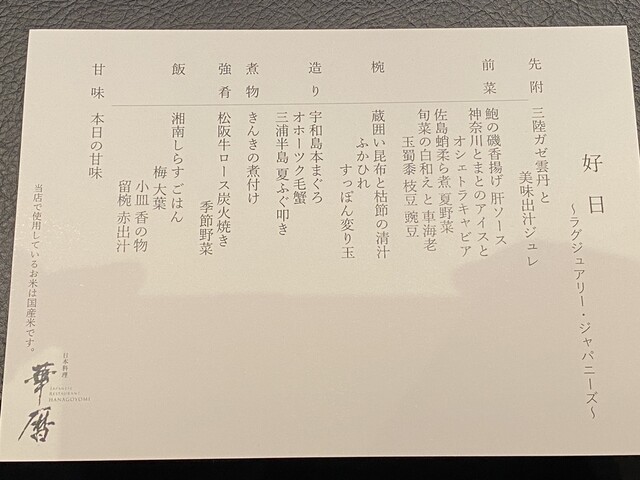 好日
～ラグジュアリー・ジャパニーズ～
先附
三陸ガゼ雲丹と
美味出汁ジュレ
前菜
鮑の磯香揚げ 肝ソース
神奈川とまとのアイスと
オシェトラキャビア
佐島蛸柔ら煮 夏野菜
旬菜の白和え と 車海老
玉蜀黍 枝豆 豌豆
椀
蔵囲い昆布と枯節の清汁
ふかひれ
すっぽん変り玉
造り
宇和島本まぐろ
オホーツク毛蟹
三浦半島 夏ふぐ叩き
煮物
きんきの煮付け
強肴
松阪牛ロース炭火焼き
季節野菜
飯
湘南しらす ごはん
梅 大葉
小皿 香の物
留椀 赤出汁
甘味
本日の甘味
当店で使用しているお米は国産米です。
日本料理
華暦
JAPANESE
RESTAURANT
HANAGOYOMI